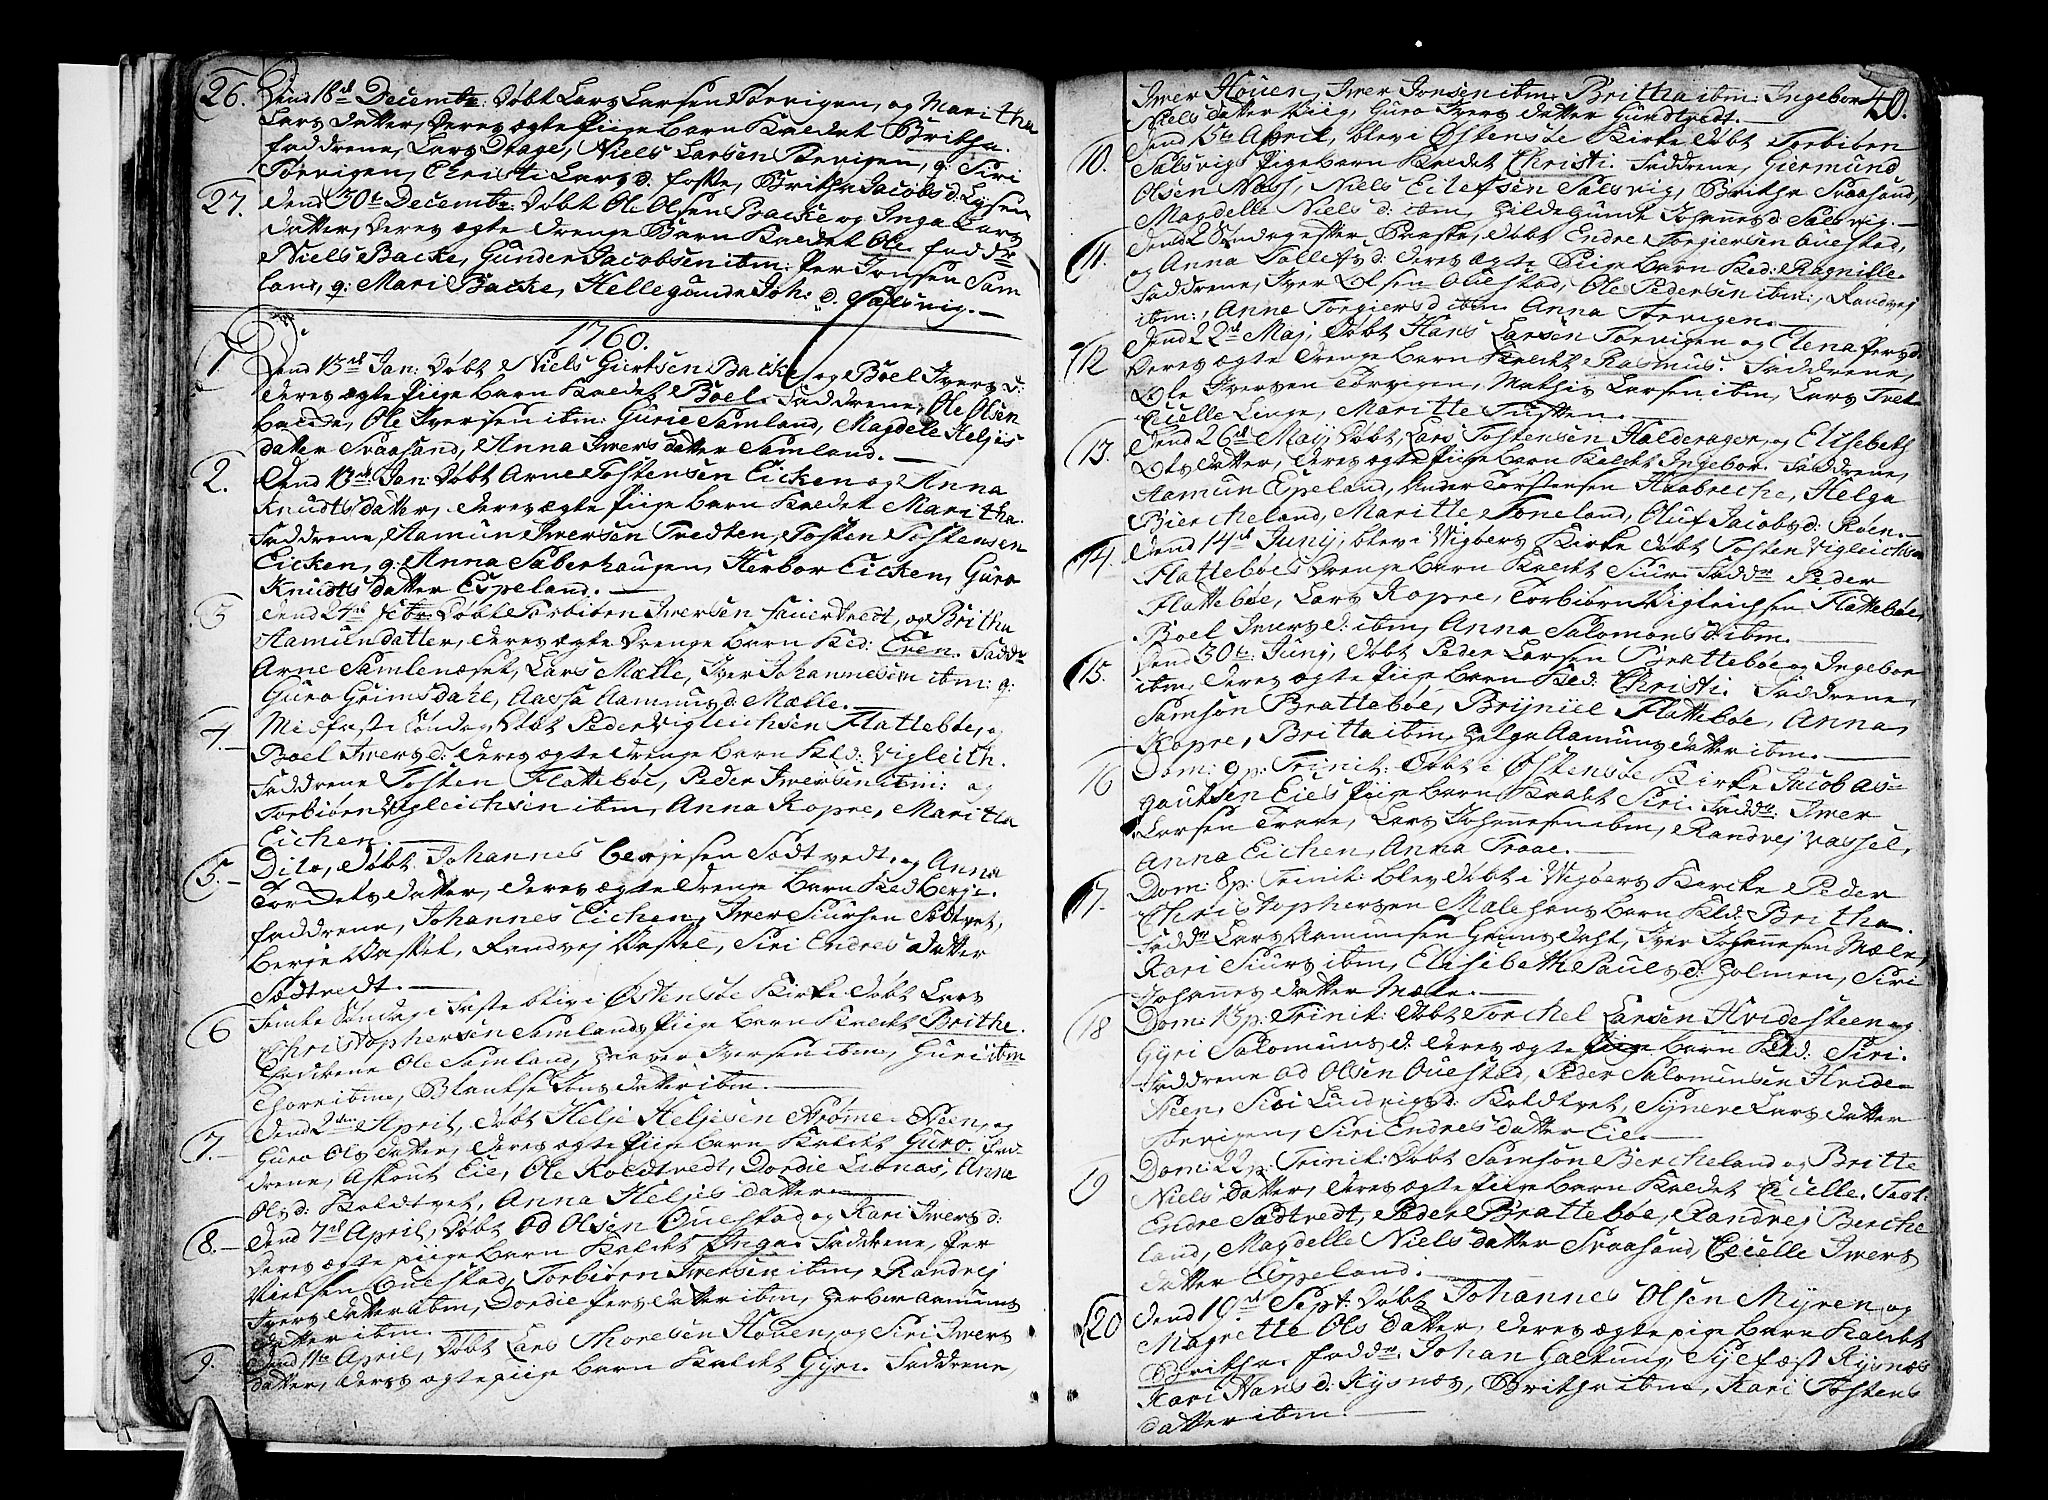 26. Dend 18de Decembr: Døbt Lars Larsen Torvigen, og Maritha
Lars datter, deres ægte Piige Barn Kaldet Britha.
faddrene, Lars Niels Larsen Torvigen, q: Siri
Torvigen, Christi Lars d: foske, Britha Jacobs d: Lysen
27. Dend 30te Decembr: Døbt Ole Olsen Backe og Inga Lars
datter, deres ægte Drenge Barn Kaldet Ole. faddr
Niels Backe, Gunder Jacobsen ibm: Per Jonsen Sam
land, q: Mari Backe, Hellegunde Joh: d: Salsvig.
1760.
1 Dend 13de Jan: Døbt Niels Giertsen Backe og Boel Ivers d:
deres ægte Piige Barn Kaldet Boel. Faddrene, Ole Olsen
Backe, Ole Iversen ibm: Gurie Samland, Magdele Heljes
datter Svaasand, Anna Iwers datter Samland.
2. Dend 13de Jan: Døbt Arne Tostensen Eicken og Anna
Knudts datter, deres ægte Piige Barn Kaldet Maritha.
Faddrene, Aamun Iwersen Tredten, Tosten Tostensen
Eicken, q: Anna Saberhaugen, Herbor Eicken, Guro
Knudts datter Espeland.
3 Dend 24de febr: Døbt Torbiörn Iwersen Sauertvedt, og Britha
Aamundatter, deres ægte Drenge Barn Kld: Even. Faddr
Arne Samlenæset, Lars Mæle, Iver Johannesen ibm: q:
Guro Grimsdahl, Aassa Aamuns d: Mælle.
4. Midfaste Søndag Døbt Peder Vigleichsen Flattebøe, og
Boel Iwers d: deres ægte Drenge Barn Kld: Vigleich.
Faddrene Tosten Flattebøe, Peder Iwersen ibm: og
Torbiørn Vigleichsen ibm, Anna Kopre, Maritha
Eichen.
5. Dito, Døbt Johannes Berjesen Sodtvedt, og Anna
Tordels datter, deres ægte Drenge Barn Kld Berje.
faddrene, Johannes Eichen, Iwer Siursen Sodtvet,
Berje Vassel, Randvej Vassel, Siri Endres datter
Sodtvedt.
6 Femte Søndag i Faste blev i Østensøe Kirke døbt Lars
Christophersen Samlands Piige Barn Kaldet Brithe.
Faddrene Ole Samland, Iversen ibm, Guri ibm
Thore ibm, Blantse Jons datter ibm.
7. Dend 2den April, døbt Helje Heljesen Strømesteen, og
Guro Ols datter, deres ægte Piige Barn Kaldet Guro. fad-
drene, Askout Eie, Ole Koldtvedt, Dordie Lionas, Anna
Ols d: Koldtvet, Anna Heljes datter
8. Dend 7de April, Døbt Od Olsen Ouestad og Kari Iwers d:
deres ægte piige Barn Kaldet Inga. Faddrene, Per
Nielsen Ouestad, Torbiørn Iwersen ibm, Randvej
Ivers datter ibm, Dordie Pers datter ibm, Herbor Aamuns
datter ibm.
9. Dend 11te April, Døbt Lars Thoresen Houen, og Siri Iwers
datter, deres ægte piige Barn Kaldet Gyri. Faddrene,
40.
Iwer Houen, Iwer Jonsen ibm. Britha ibm. Ingebor
Niels datter Viig, Guro Ivers datter Gundtvedt.
10. Dend 15de April, blev i Østensøe Kirke Døbt Torbiörn
Salsvigs Piige Barn Kaldet Christi. Faddrene, Giermund
Olsen Næss, Niels Eilefsen Salsvig, Britha Svaasand,
Magdelle Niels d: ibm, Hildegunde Johannes d: Salsvig.
11. Dend 2 Søndag efter Paaske, Døbt Endre Torgiersen Ouestad,
og Anna Tollefs d: deres ægte Piige Barn Kld: Ragnille.
Faddrene, Iver Olsen Ouestad, Ole Pedersen ibm:, Randvej
ibm:, Anne Torgiers d ibm. Anna Torvigen.
12 Dend 22de Maj, Døbt Hans Larsen Torvigen og Elena Pers d:
deres ægte Drenge Barn Kaldt Rasmus. Faddrene,
Ole Iversen Torvigen, Mathis Larsen ibm, Lars Tvet
Cicelle Linge, Maritte Tuften.
13. Dend 26de Maij, Døbt Lars Tostensen Halderager, og Elisebeth
Ols datter, deres ægte Piige Barn Kaldet Ingebor. Faddrene,
Aamun Espeland, Ander Torstensen Aabreche, Helga
Biercheland, Maritte Toneland, Oluf Jacobs d: Røen.
14. Dend 14de Junij, blev i Wigøers Kirke døbt Tosten Vigleichsen
Flattebøes Drenge Barn Kaldt Siur. Faddr Peder
Flattebøe, Lars Kopre, Torbiørn Vigleichsen Flattebøe,
Boel Iwers d: ibm, Anna Salomons d ibm.
15. Dend 30te Junij, Døbt Peder Larsen Brattebøe og Ingebor
ibm, deres ægte Piige Barn Kld: Christi. Faddrene,
Samson Brattebøe, Brijniel Flattebøe, Anna
Kopre, Britta ibm, Helga Aamuns datter ibm.
16 Dom: 9 p: Trinit: Døbt i Østensøe Kirke Jacob As-
gautsen Eies Piige Barn Kaldt Siri. Faddr: Iwer
Larsen Traae, Lars Johannesen ibm, Randvej Vassel,
Anna Eichen, Anna Traae.
17. Dom: 8 p: Trinit: blev Døbt i Wigøers Kircke Peder
Christophersen Male hans Barn Kld: Britha.
Faddr Lars Aamunsen Grimsdahl, Iver Johannesen Mæle,
Kari Siurs ibm, Elisibeth Pauls d: Holmen, Siri
Johannes datter Mæle.
18 Dom: 13 p: Trinit: Døbt Torchel Larsen Hvidesteen og
Gyri Salomuns d: deres ægte Piige Barn Kld: Siri.
Faddrene Od Olsen Ouestad, Peder Salomunsen Hvide-
steen, Siri Ludvigs d: Koldtvet, Syneve Lars datter
Torvigen, Siri Endres datter Eie.
19 Dom: 22 p: Trinit: Døbt Samson Bercheland og Britte
Niels datter, deres ægte Piige Barn Kaldet Cicelle. Test:
Endre Sodtvedt, Peder Brattebøe, Randvej Berche
land, Magdelle Niels datter Svaasand, Cicelle Iwers
datter Espeland.
20 Dend 19de Sept: Døbt Johannes Olsen Myren og
Magrette Ols datter, deres ægte pige Barn Kaldet
Britha. faddr. Johan Galtung, Kysnæs
Kari Hans d: Kysnes, Britha ibm, Kari Tostens
datter ibm.